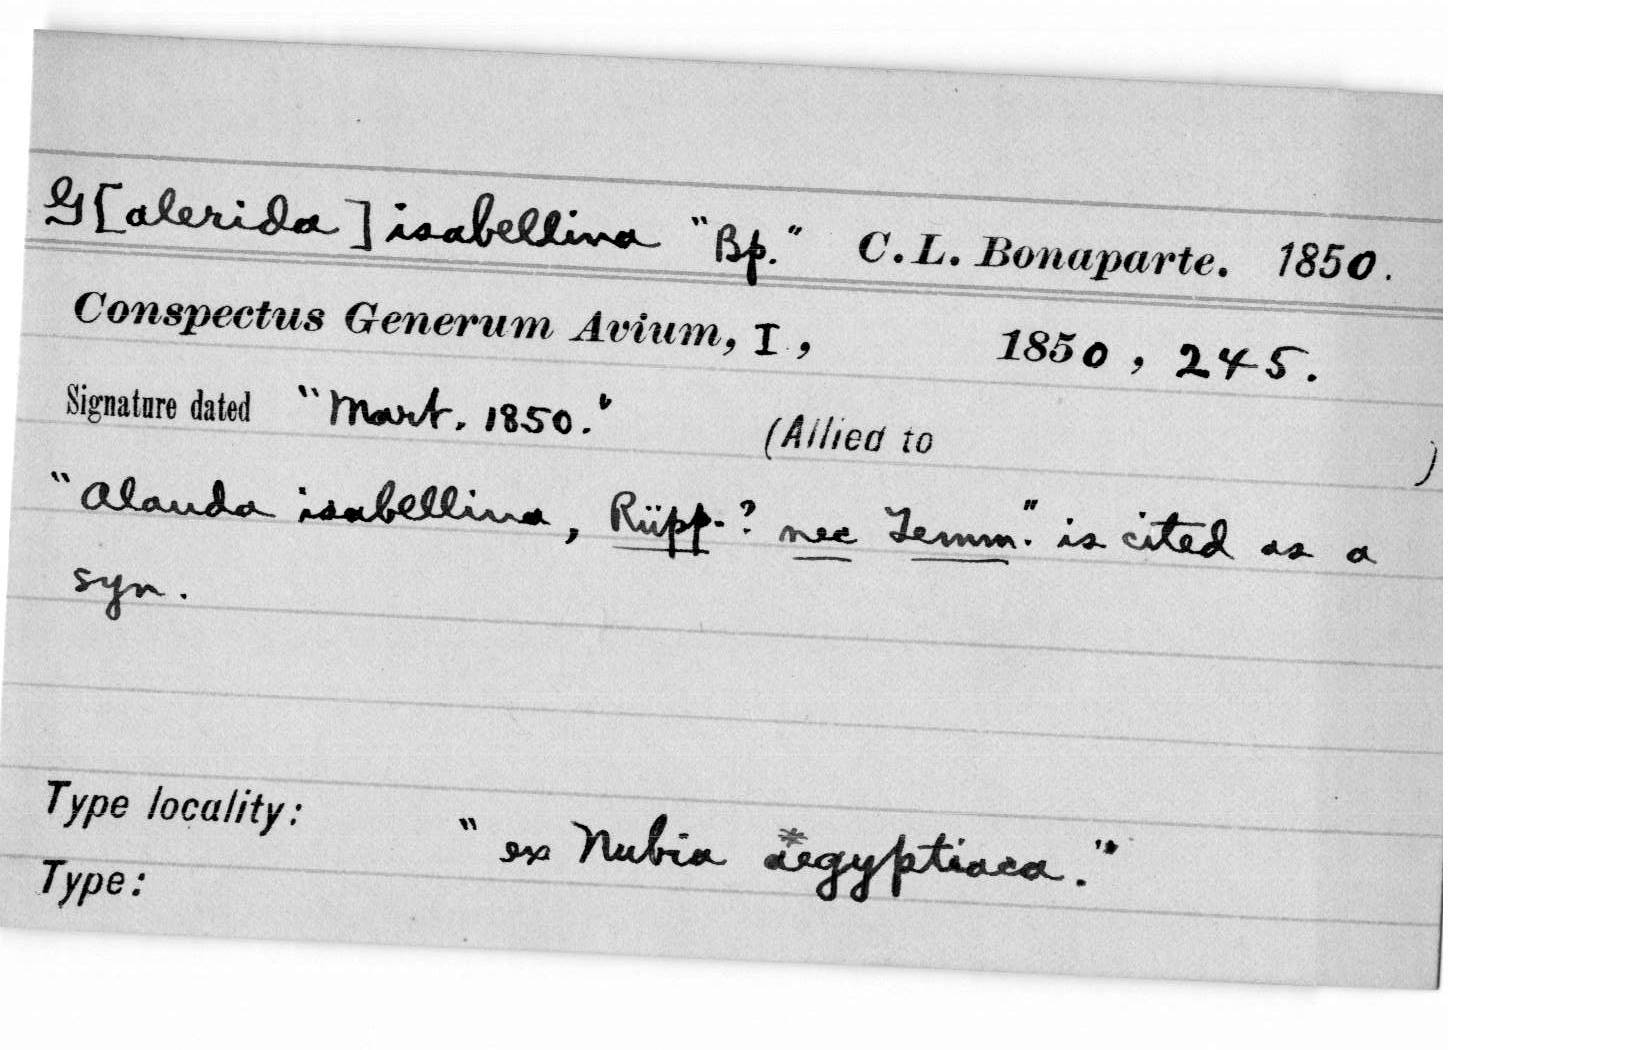 G[alerida] isabellina "Bp." C.L. Bonaparte. 1850.
Conspectus Generum Avium, I, 1850, 245.
Signature dated "Mart. 1850." (Allied to )
"Alauda isabellina, Rüpp.? nec Temm." is cited as a
syn.
Type locality: "ex Nubia aegyptiaca."
Type: